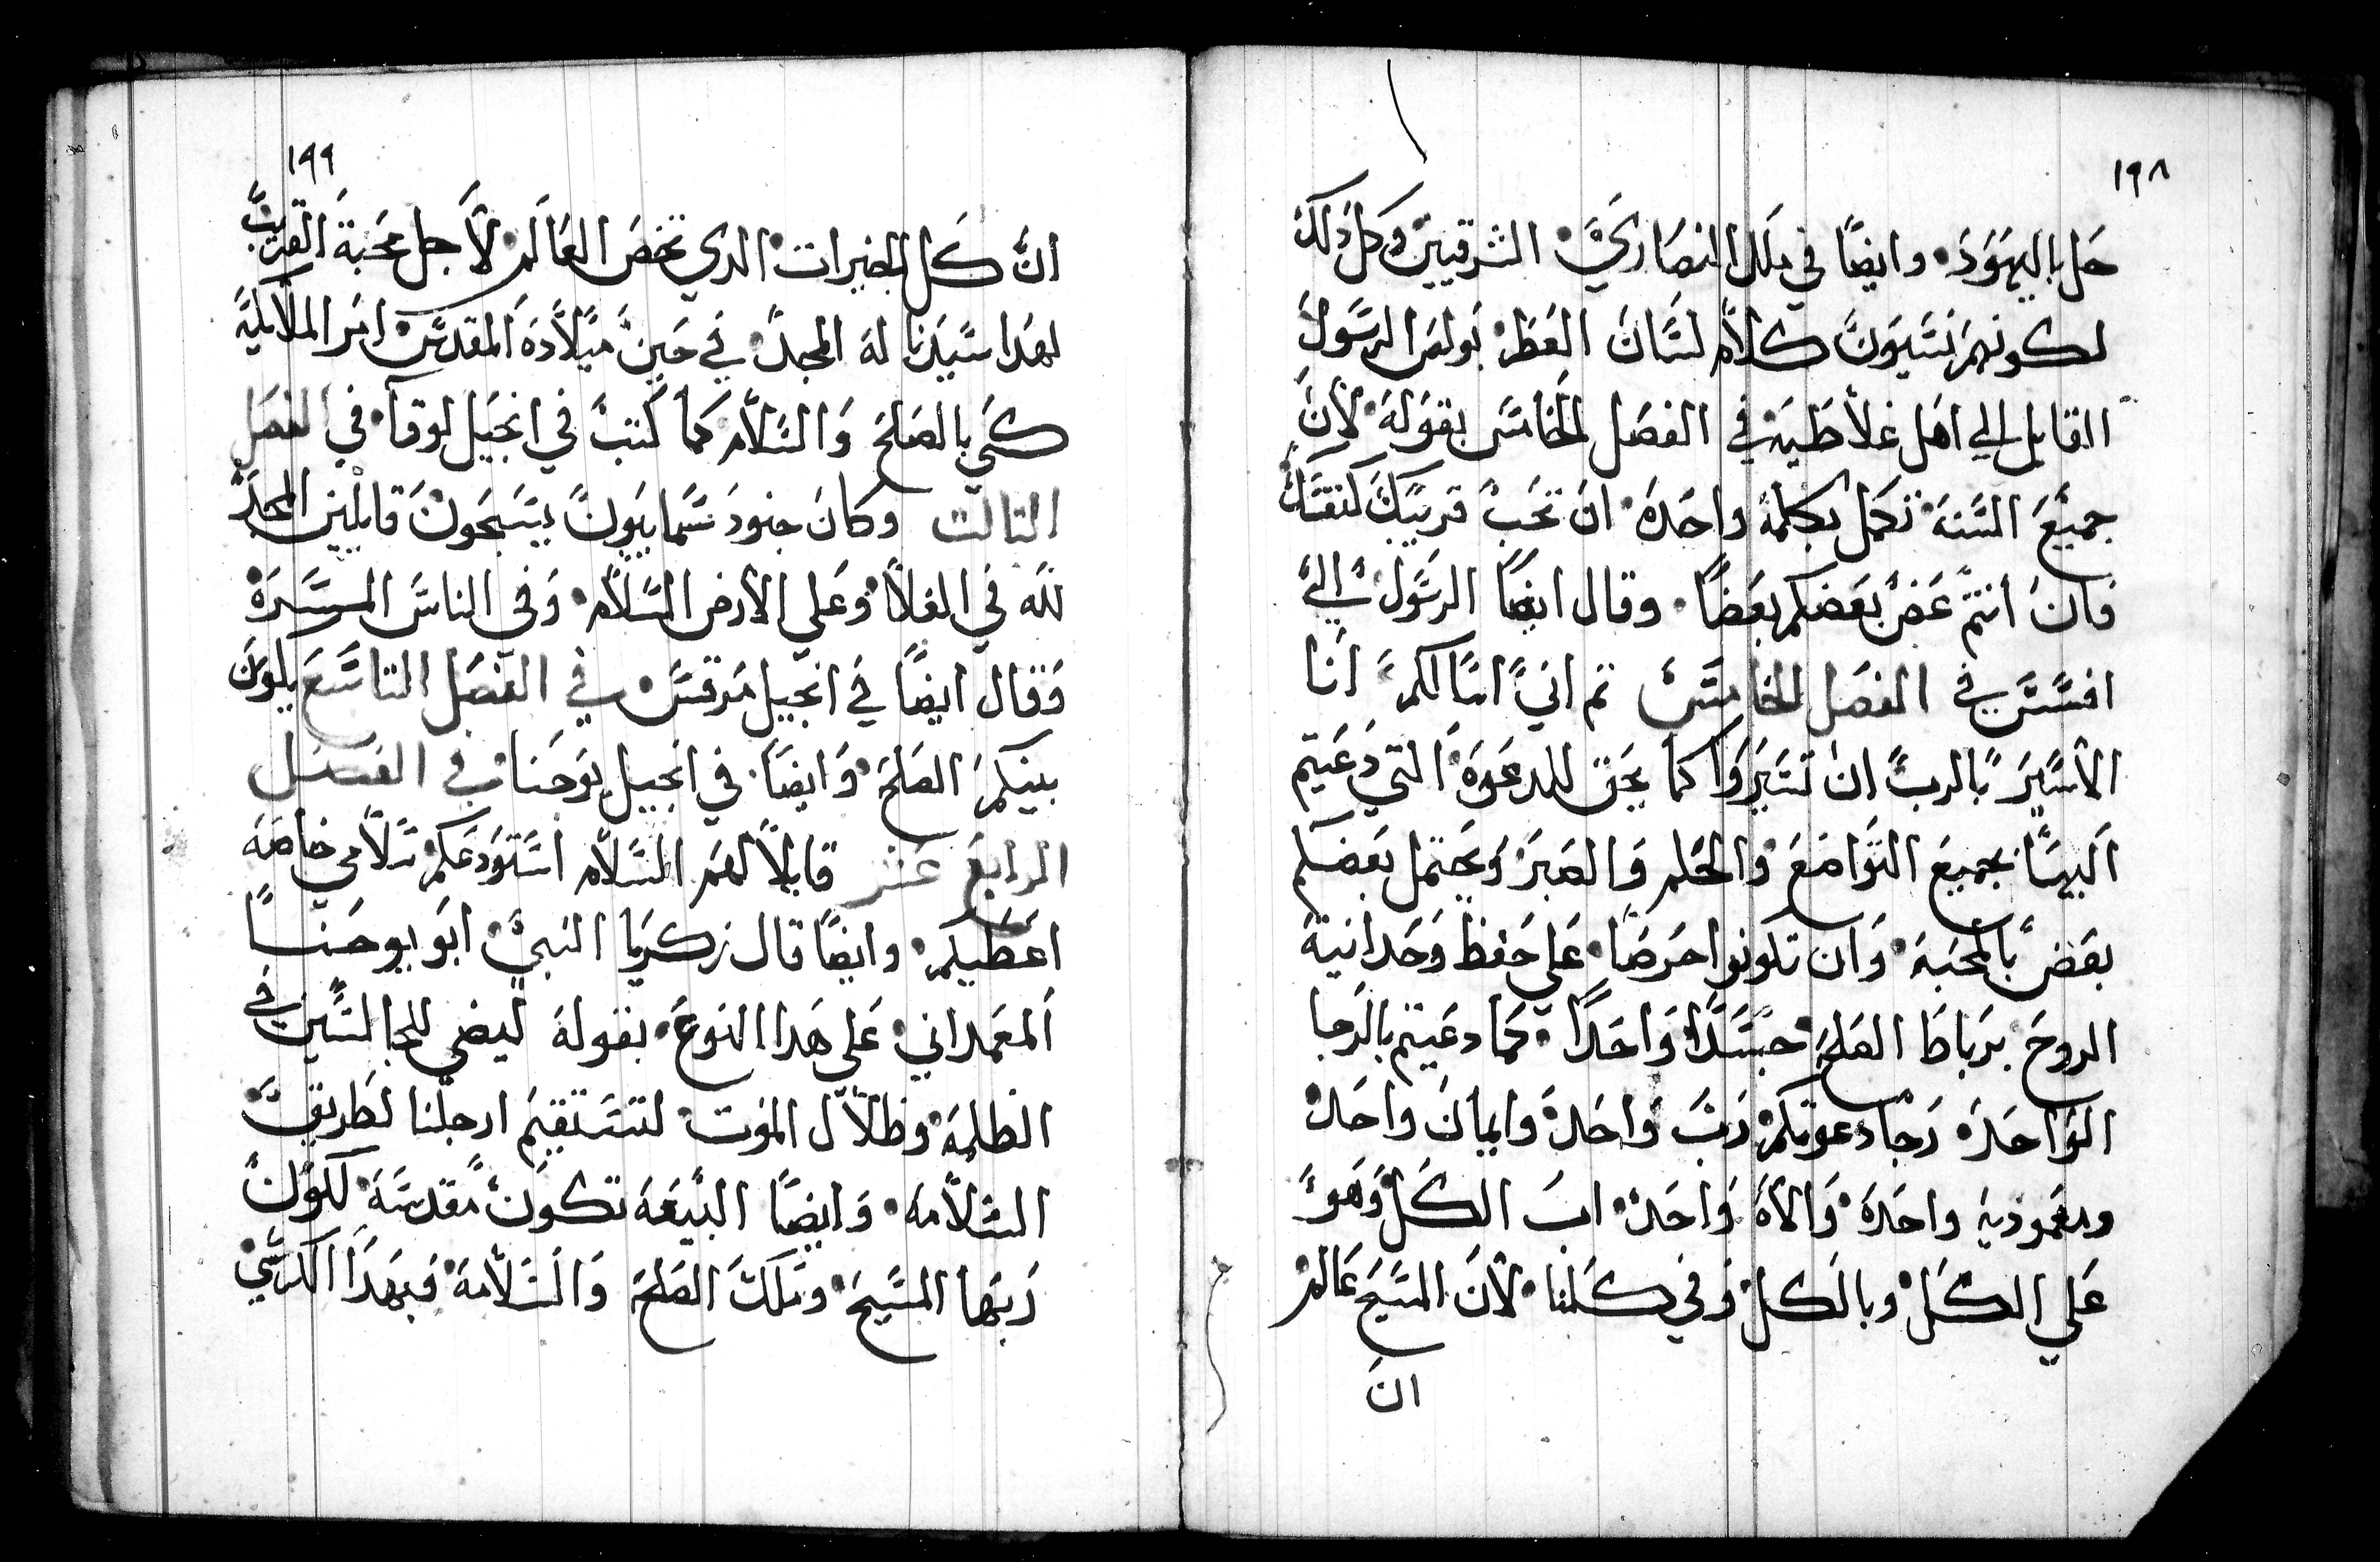 ١٩٨
حل باليهود وايضا في ملل النصاري الشرقيين وكل ذلك
لكونهم نسيون كلام لسان العطر بولس الرسول
القايل الي اهل غلاطيه في الفصل الخامس بقوله لان
جميع السنه تكمل بكلمه واحده ان تحب قريبك كنفسك
فان انتم عض بعضكم بعضا وقال ايضا الرسول الي
افسس في الفصل الخامس تم اني اسالكم انا
الاسير بالرب ان تسيروا كما يحق للدعوة التي دعيتم
اليها بجميع التواضع والحلم والصبر ويحتمل بعضكم
بعض بالمحبه وان تكونوا حرصا علي حفظ وحدانية
الروح برباط الصلح جسدا واحدا كما دعيتم بالرجا
الواحده رجا دعوتكم رب واحد وايمان واحد
ومعموديه واحده والاه واحد اب الكل وهو
علي الكل وبالكل وفي كلنا لان المسيح عالم
ان
١٩٩
ان كل الخيرات الدي تخص العالم لاجل محبة القريب
لهدا سيدنا له المجد في حين ميلاده المقدس امر الملايكه
كي بالصلح والسلام كما كتب في انجيل لوقا في الفصل
التالت وكان جنود سماييون يسبحون قايلين المجد
لله في العلا وعلي الارض السلام وفي الناس المسره
وقال ايضا في انجيل مرقس في الفصل التاسع يكون
بينكم الصلح وايضا في انجيل يوحنا في الفصل
الرابع عشر قايلا لهم السلام استودعكم سلامي خاصه
اعطيكم وايضا قال زكريا النبي ابو يوحنا
المعمداني علي هدا النوع بقوله ليضي للجالسين في
الظلمه وظلال الموت لتستقيم ارجلنا لطريق
السلامه وايضا البيعه تكون مقدسه لكون
ربها المسيح وملك الصلح والسلامه فبهدا الكرسي